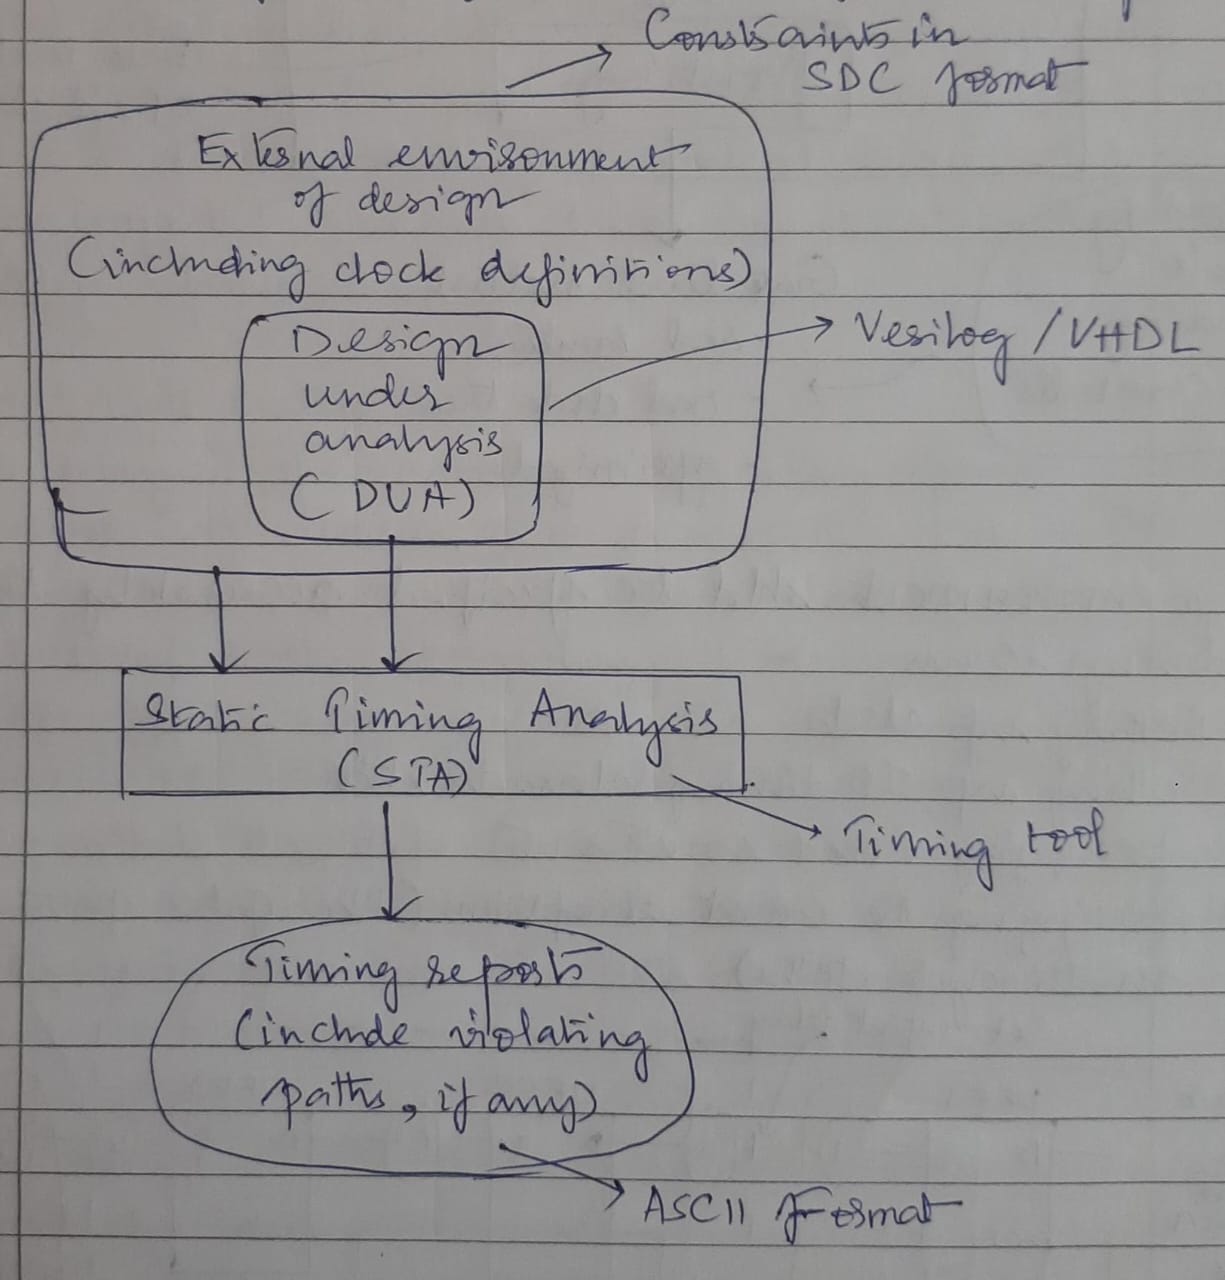 Constraints in
SDC format
External environment
of design
(including clock definitions)
Design
under
analysis
(DUA)
Verilog / VHDL
Static Timing Analysis
(STA)
Timing tool
Timing reports
(include violating
paths, if any)
ASCII Format